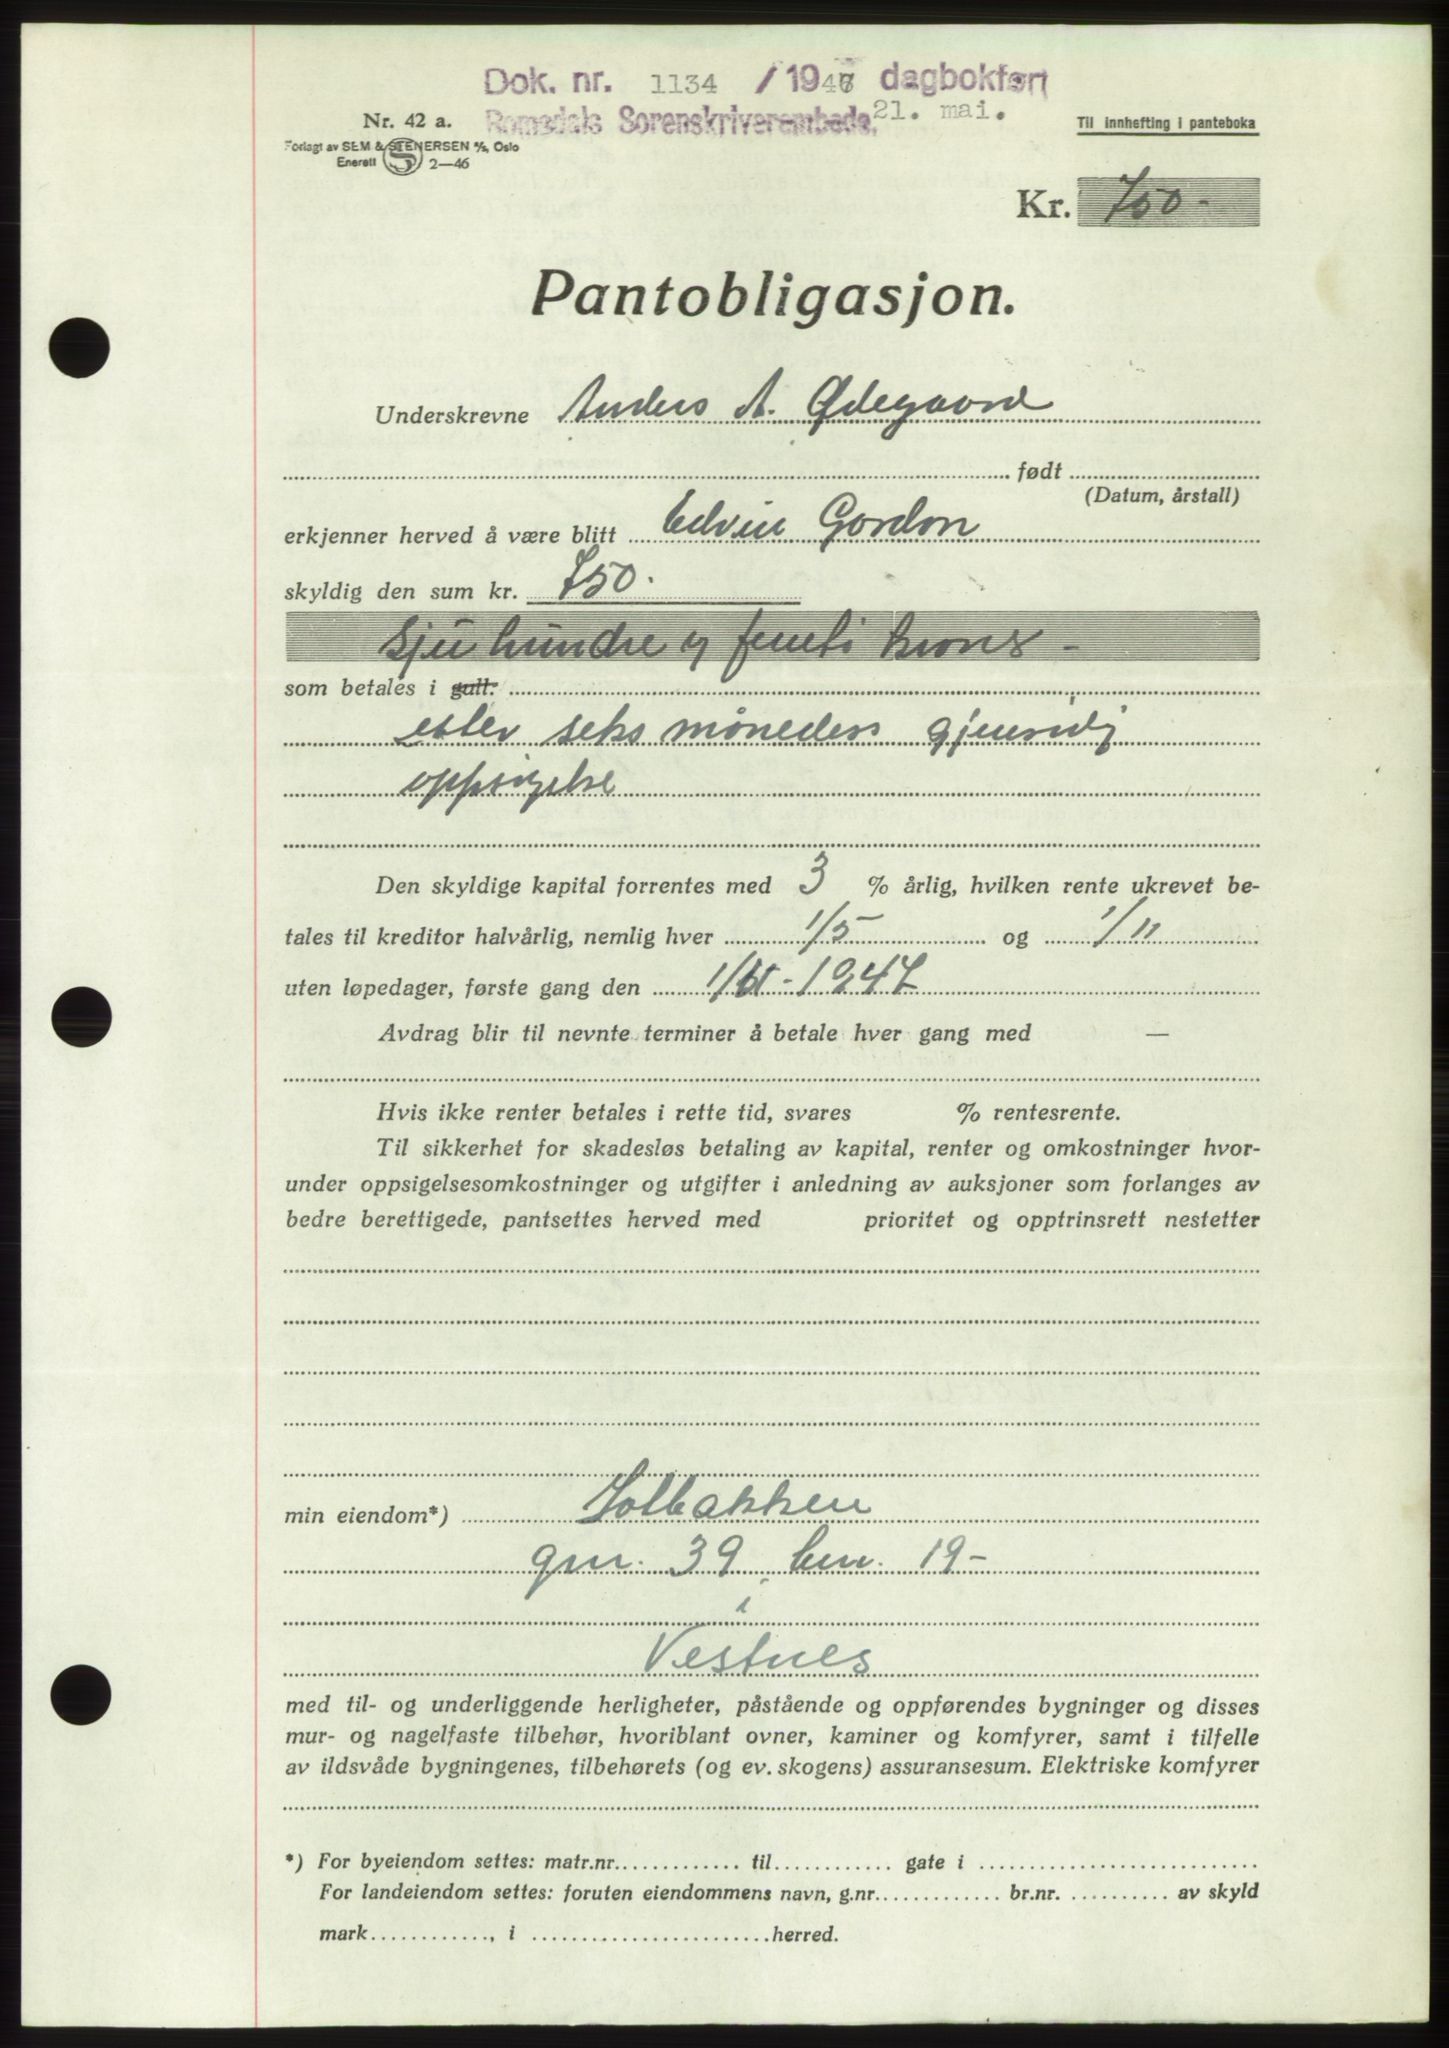 Dok. nr. 1134 / 1947 dagbokført
Romsdals Sorenskriverembede, 21. mai.
Nr. 42 a.
Forlagt av SEM & STENERSEN A/S, Oslo
Enerett S 2—46
Til innhefting i panteboka
Kr. 750 -
Pantobligasjon.
Underskrevne Anders A. Ødegaard
født
(Datum, årstall)
erkjenner herved å være blitt Edvin Gordon
skyldig den sum kr. 750.
Sju hundre og femti kroner -
som betales i gull.
etter seks måneders gjensidig
oppsigelse
Den skyldige kapital forrentes med 3 % årlig, hvilken rente ukrevet be-
tales til kreditor halvårlig, nemlig hver 1/5 og 1/11
uten løpedager, første gang den 1/11 - 1947
Avdrag blir til nevnte terminer å betale hver gang med —
Hvis ikke renter betales i rette tid, svares % rentesrente.
Til sikkerhet for skadesløs betaling av kapital, renter og omkostninger hvor-
under oppsigelsesomkostninger og utgifter i anledning av auksjoner som forlanges av
bedre berettigede, pantsettes herved med prioritet og opptrinsrett nestetter
min eiendom*) Solbakken
gnr. 39 bnr. 19 -
i
Vestnes
med til- og underliggende herligheter, påstående og oppførendes bygninger og disses
mur- og nagelfaste tilbehør, hvoriblant ovner, kaminer og komfyrer, samt i tilfelle
av ildsvåde bygningenes, tilbehørets (og ev. skogens) assuransesum. Elektriske komfyrer
*) For byeiendom settes: matr.nr. til gate i
For landeiendom settes: foruten eiendommens navn, g.nr. br.nr. av skyld
mark , i herred.